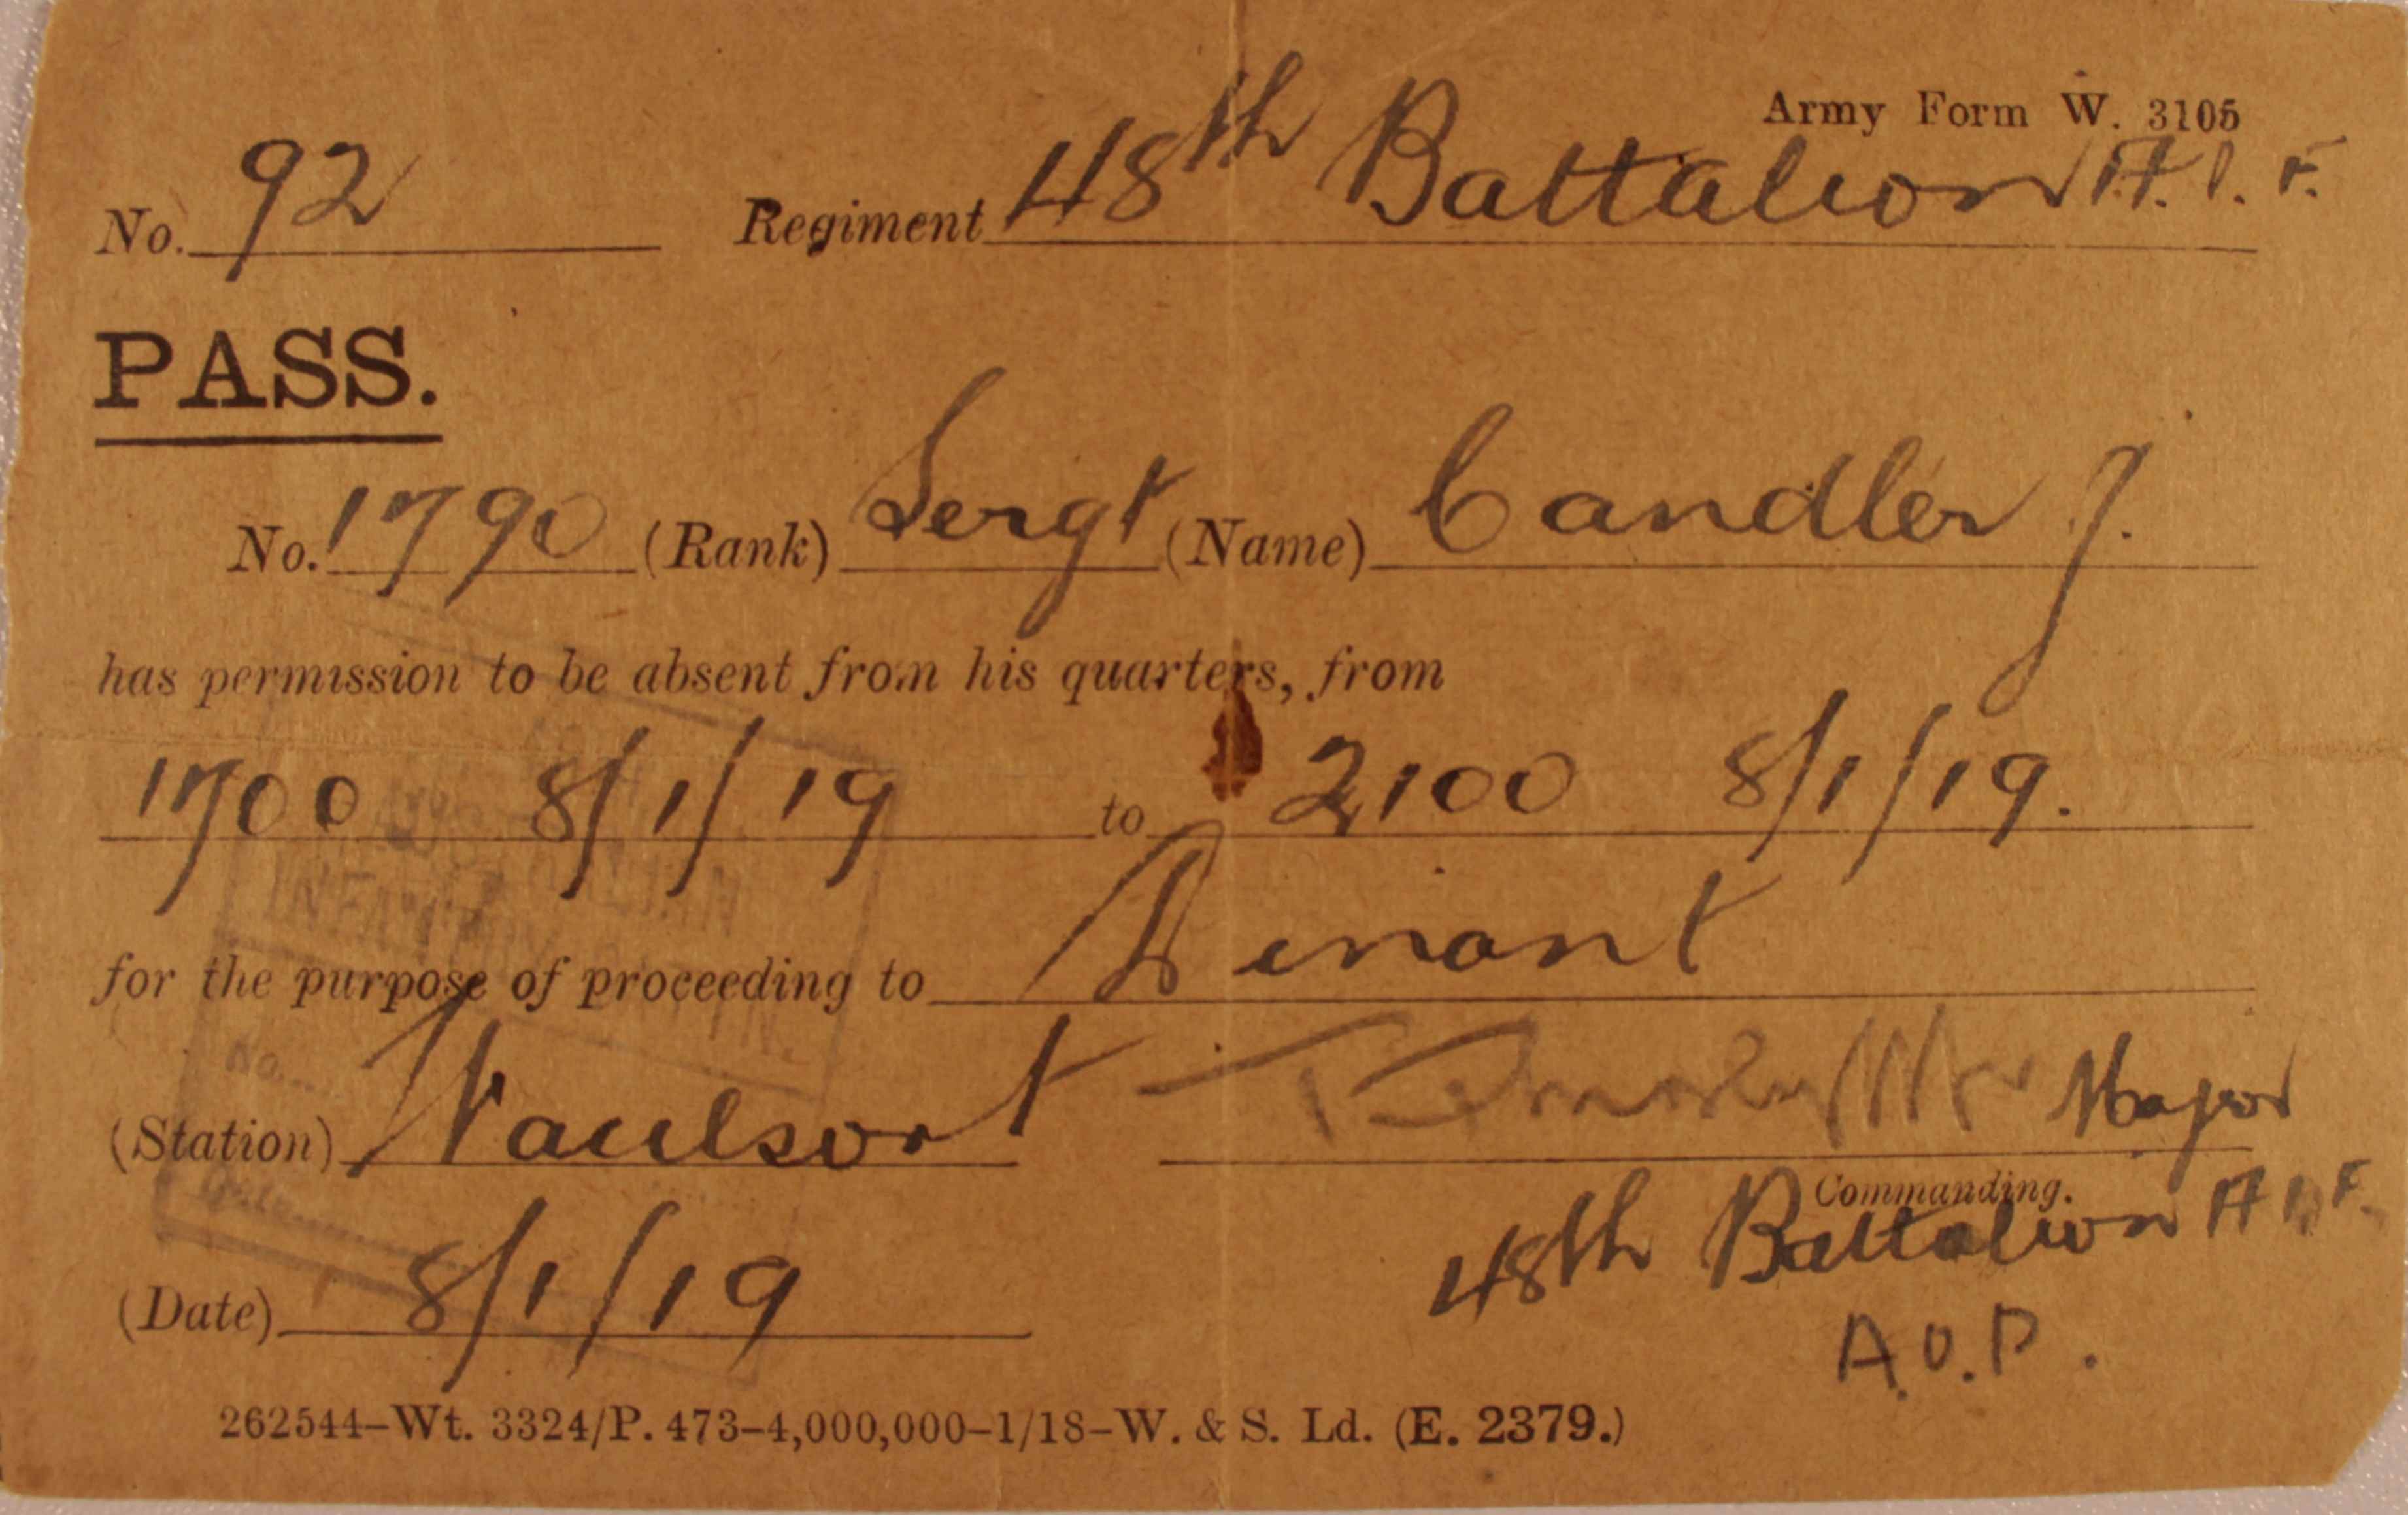 Army Form W. 3105
No. 92 Regiment 48th Battalion A.I.F.
PASS.
No. 1790 (Rank) Sergt (Name) Candler J.
has permission to be absent from his quarters, from
1700 8/1/19 to 2100 8/1/19.
for the purpose of proceeding to Dinant
(Station) Waulsort Major
Commanding.
48th Battalion A.I.F.
(Date) 8/1/19
A.O.P.
262544–Wt. 3324/P. 473–4,000,000–1/18–W. & S. Ld. (E. 2379.)
AUSTRALIAN
INFANTRY
No....
Date......